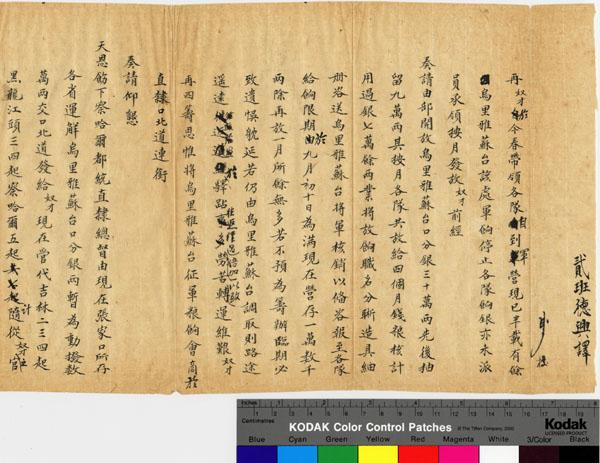 貳班德興譯
再奴才於今春帶領各隊自到軍營現已半載有餘
烏里雅蘇台該處軍餉停止各隊餉銀亦未派
員承領按月發放奴才前經
奏請由部開放烏里雅蘇台口分銀三十萬兩先後抽
留九萬兩其按月各隊共放給四個月錢糧核計
用過銀七萬餘兩業將放餉職名分晰造具細
册咨送烏里雅蘇台將軍核銷以俻咨報至各隊
給餉限期於九月初十日為滿現在營存一萬數千
兩除再放一月所餘無多若不預為籌辦臨期必
致遺悞躭延若仍由烏里雅蘇台調取則路途
遥遠驛站勞苦轉運維艱奴才
再四籌思惟將烏里雅蘇台征軍糧餉會商於
直隸口北道連銜
奏請仰懇
天恩飭下察哈爾都統直隸總督由現在張家口所存
各省運解烏里雅蘇台口分銀兩暫為動撥數
萬兩交口北道發給奴才現在當代吉林二三四起
黑龍江頭三四起察哈爾五起計隨從官
Inches
Centimetres
KODAK Color Control Patches
© The Tiffen Company, 2000
Kodak
LICENSED PRODUCT
Blue Cyan Green Yellow Red Magenta White 3/Color Black